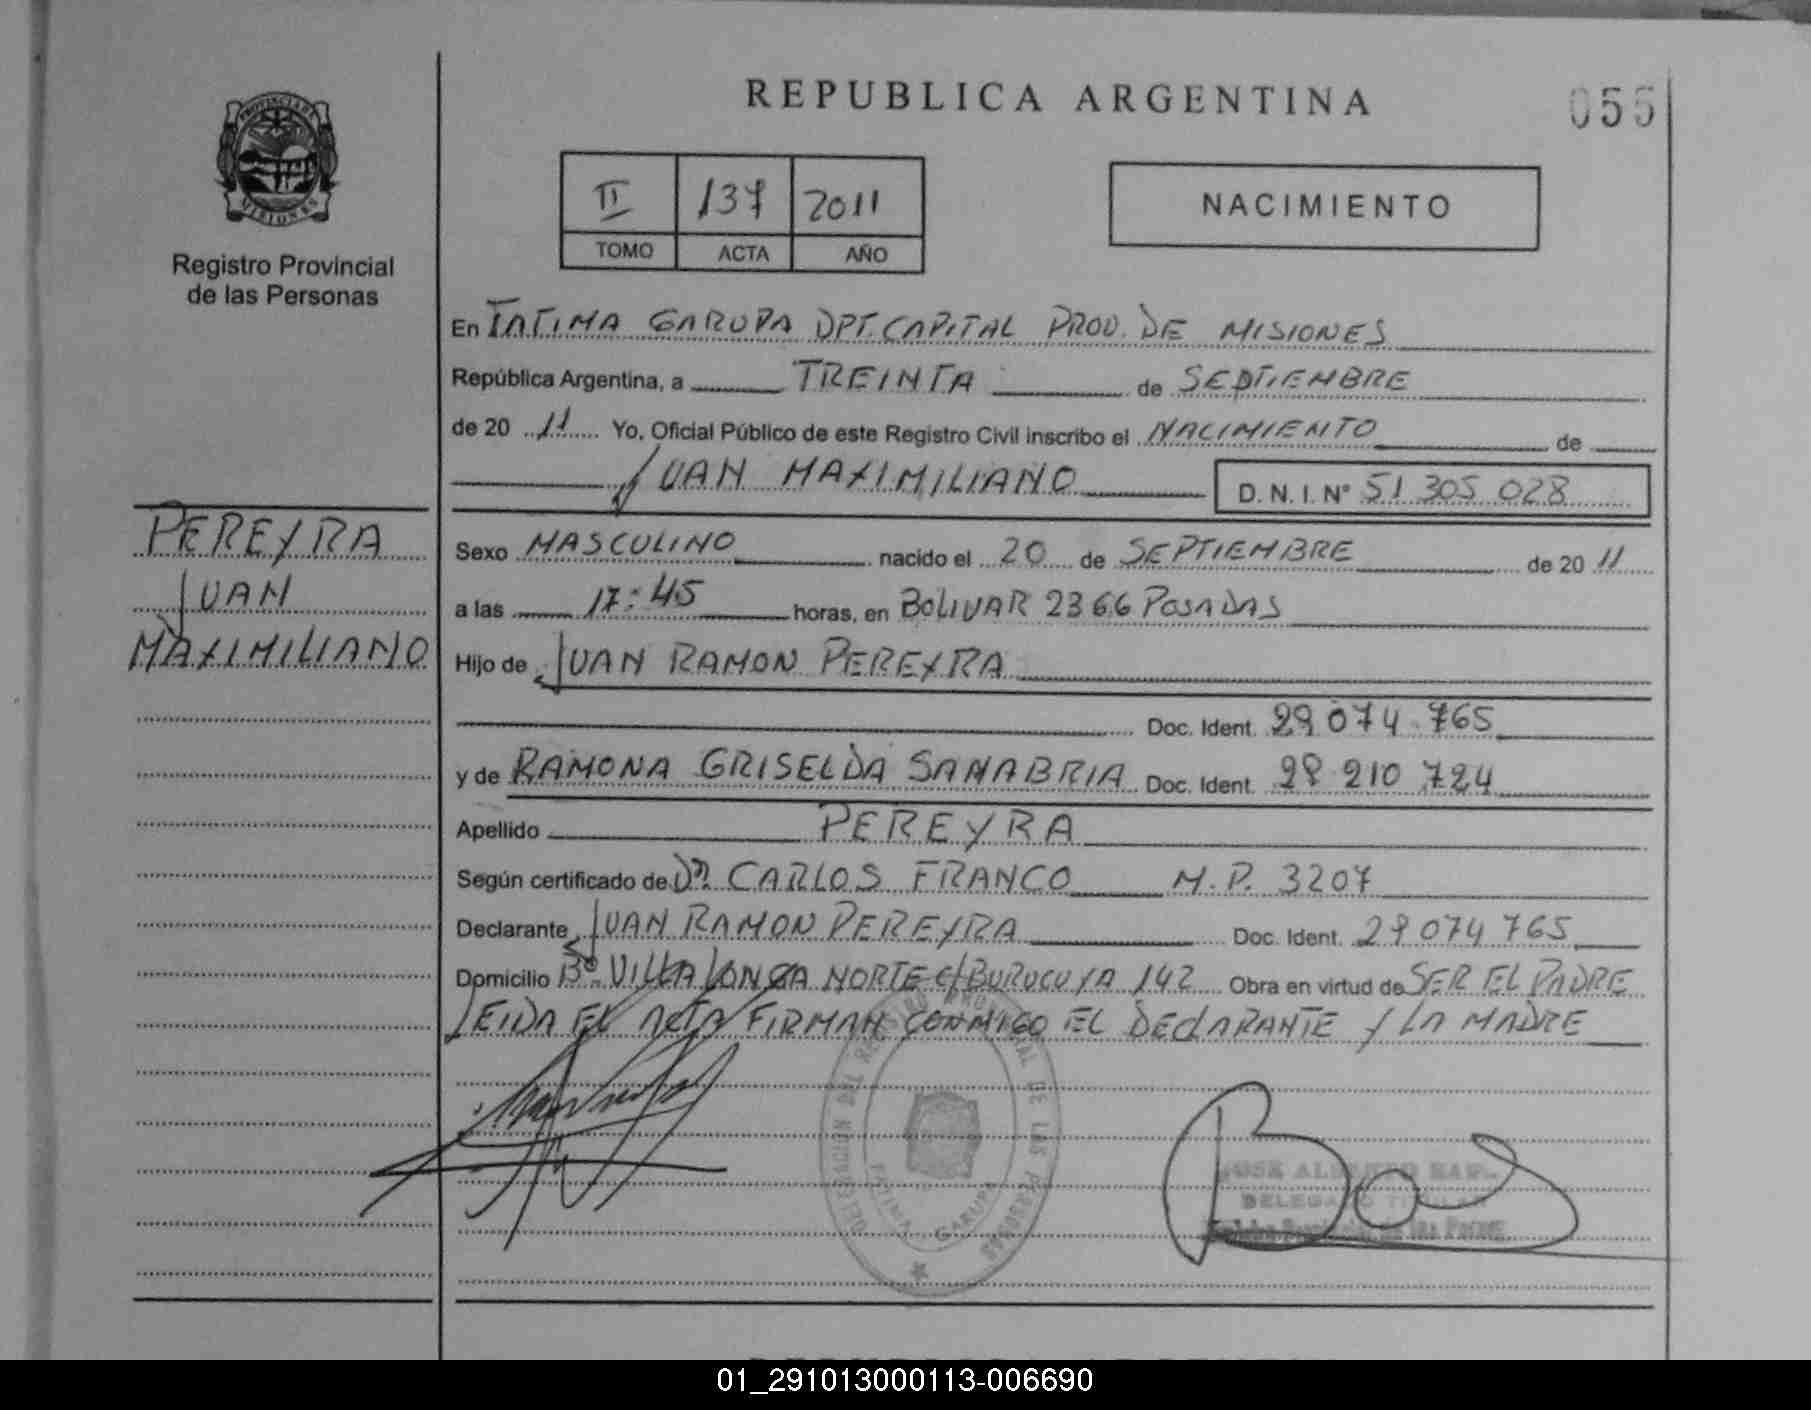 REPUBLICA ARGENTINA
055
PROVINCIA DE
MISIONES
Registro Provincial
de las Personas
II 137 2011
TOMO ACTA AÑO
NACIMIENTO
En FATIMA GARUPA DPT. CAPITAL PROV. DE MISIONES
República Argentina, a TREINTA de SEPTIEMBRE
de 20 11 Yo, Oficial Público de este Registro Civil inscribo el NACIMIENTO de
JUAN MAXIMILIANO D.N.I. Nº 51 305 028
PEREYRA
JUAN
MAXIMILIANO
Sexo MASCULINO nacido el 20 de SEPTIEMBRE de 20 11
a las 17:45 horas, en BOLIVAR 2366 POSADAS
Hijo de JUAN RAMON PEREYRA
Doc. Ident. 29 074 765
y de RAMONA GRISELDA SANABRIA Doc. Ident. 28 210 724
Apellido PEREYRA
Según certificado de Dr. CARLOS FRANCO M.P. 3207
Declarante JUAN RAMON PEREYRA Doc. Ident. 29 074 765
Domicilio Bº VILLA LONGA NORTE C/ BURUCUYA 142 Obra en virtud de SER EL PADRE
LEIDA EL ACTA FIRMAN CONMIGO EL DECLARANTE Y LA MADRE
DELEGACION DEL REGISTRO PROVINCIAL DE LAS PERSONAS
FATIMA GARUPA
JOSE ALBERTO
DELEGADO TITULAR
01_291013000113-006690